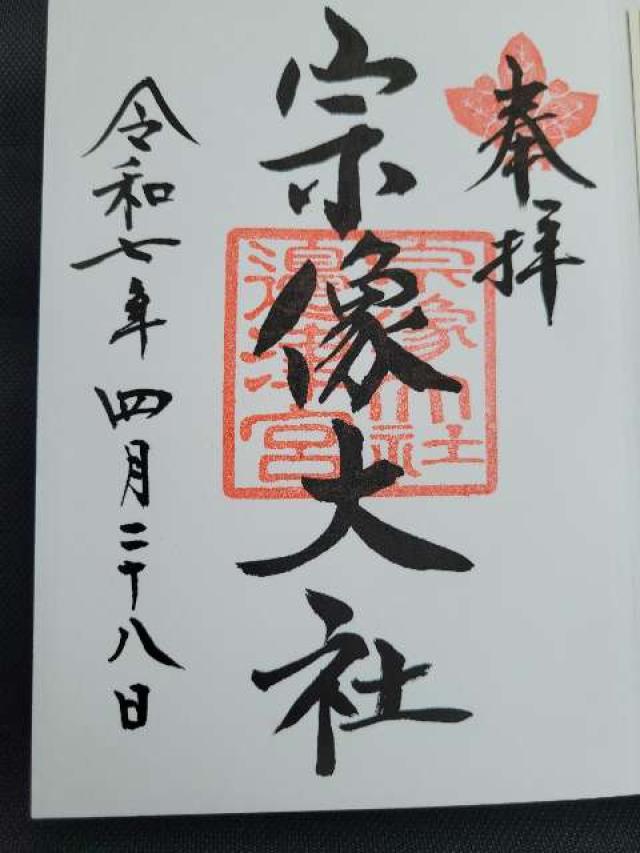 奉拝
宗像大社
宗像大社
邊津宮
令和七年四月二十八日